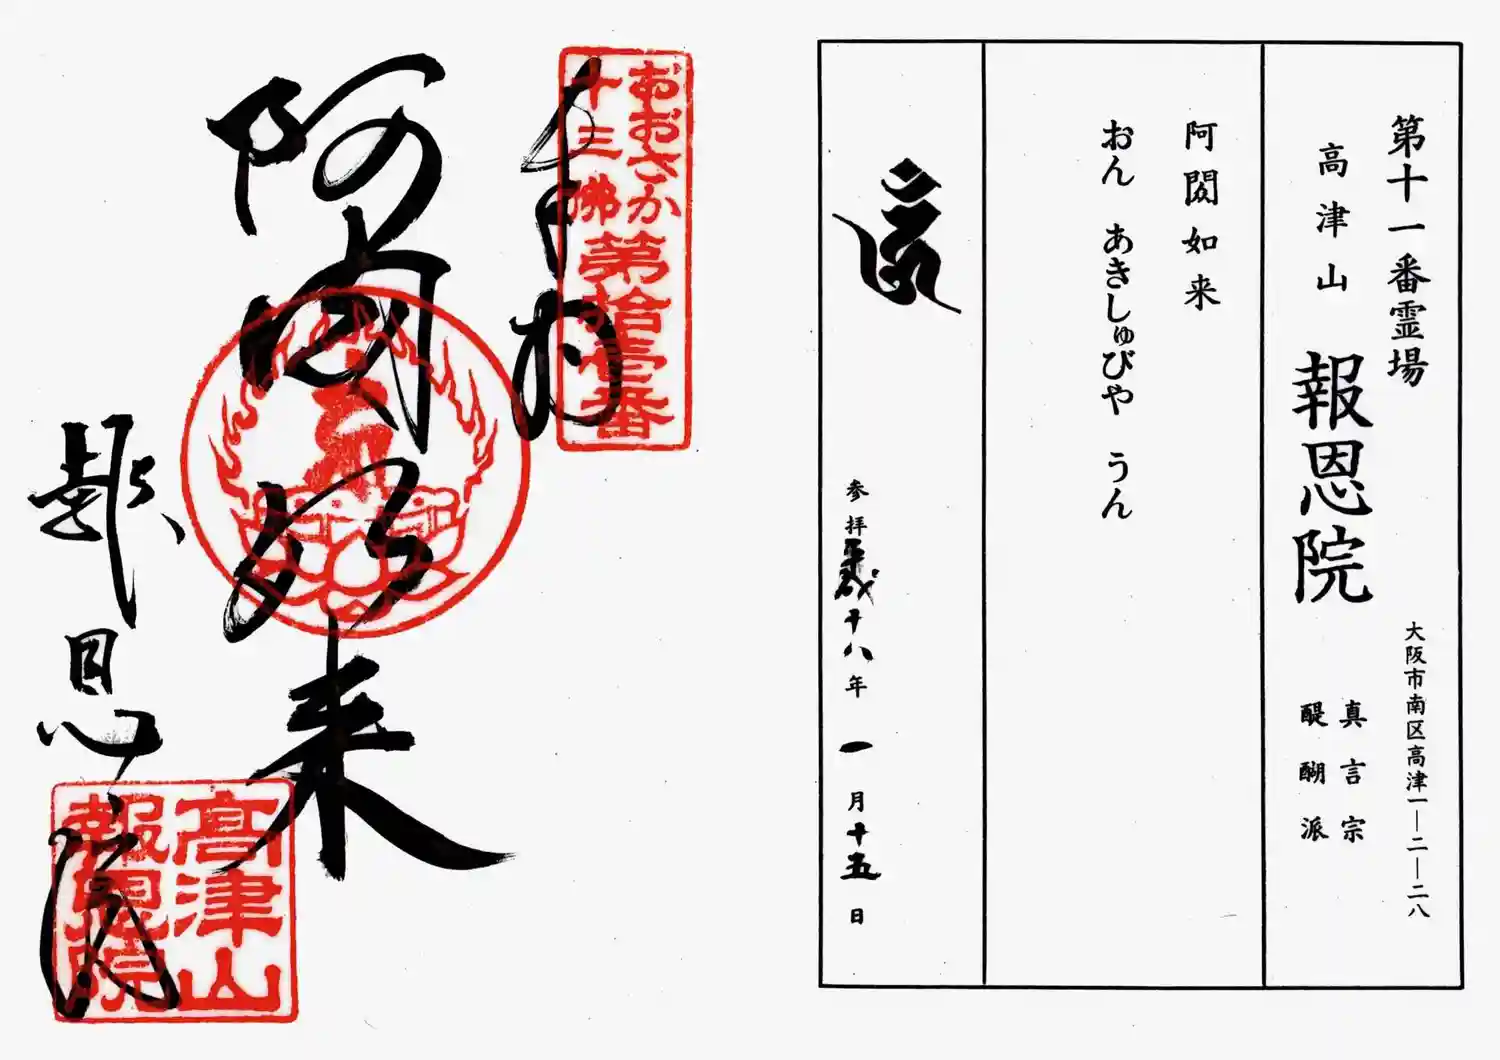 第十一番霊場
高津山 報恩院
大阪市南区高津一―二―二八
真言宗
醍醐派
阿閦如来
おん あきしゅびや うん
参拝平成十八年 一月十五日
おおさか
十三佛
第拾壹番
奉拝
阿閦如来
報恩院
高津山
報恩院